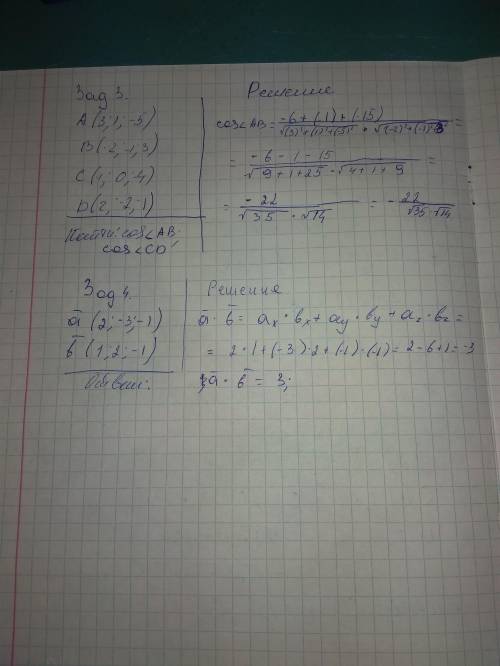 Зад 3.
A (3; 1; -5)
B (-2, -1, 3)
C (1, 0, -4)
D (2, -2, -1)
Найти: cos∠AB
cos∠CD
Решение
cos∠AB = (-6 + (-1) + (-15)) / (√(3)²+(1)²+(-5)² · √(-2)²+(-1)²+3²) =
= (-6 - 1 - 15) / (√9+1+25 · √4+1+9) =
= (-22) / (√35 · √14) = - 22 / (√35 · √14)
Зад 4.
a̅ (2; -3; -1)
b̅ (1; 2; -1)
Ответ:
Решение
a̅ · b̅ = ax · bx + ay · by + az · bz =
= 2 · 1 + (-3) · 2 + (-1) · (-1) = 2 - 6 + 1 = -3
a̅ · b̅ = 3;